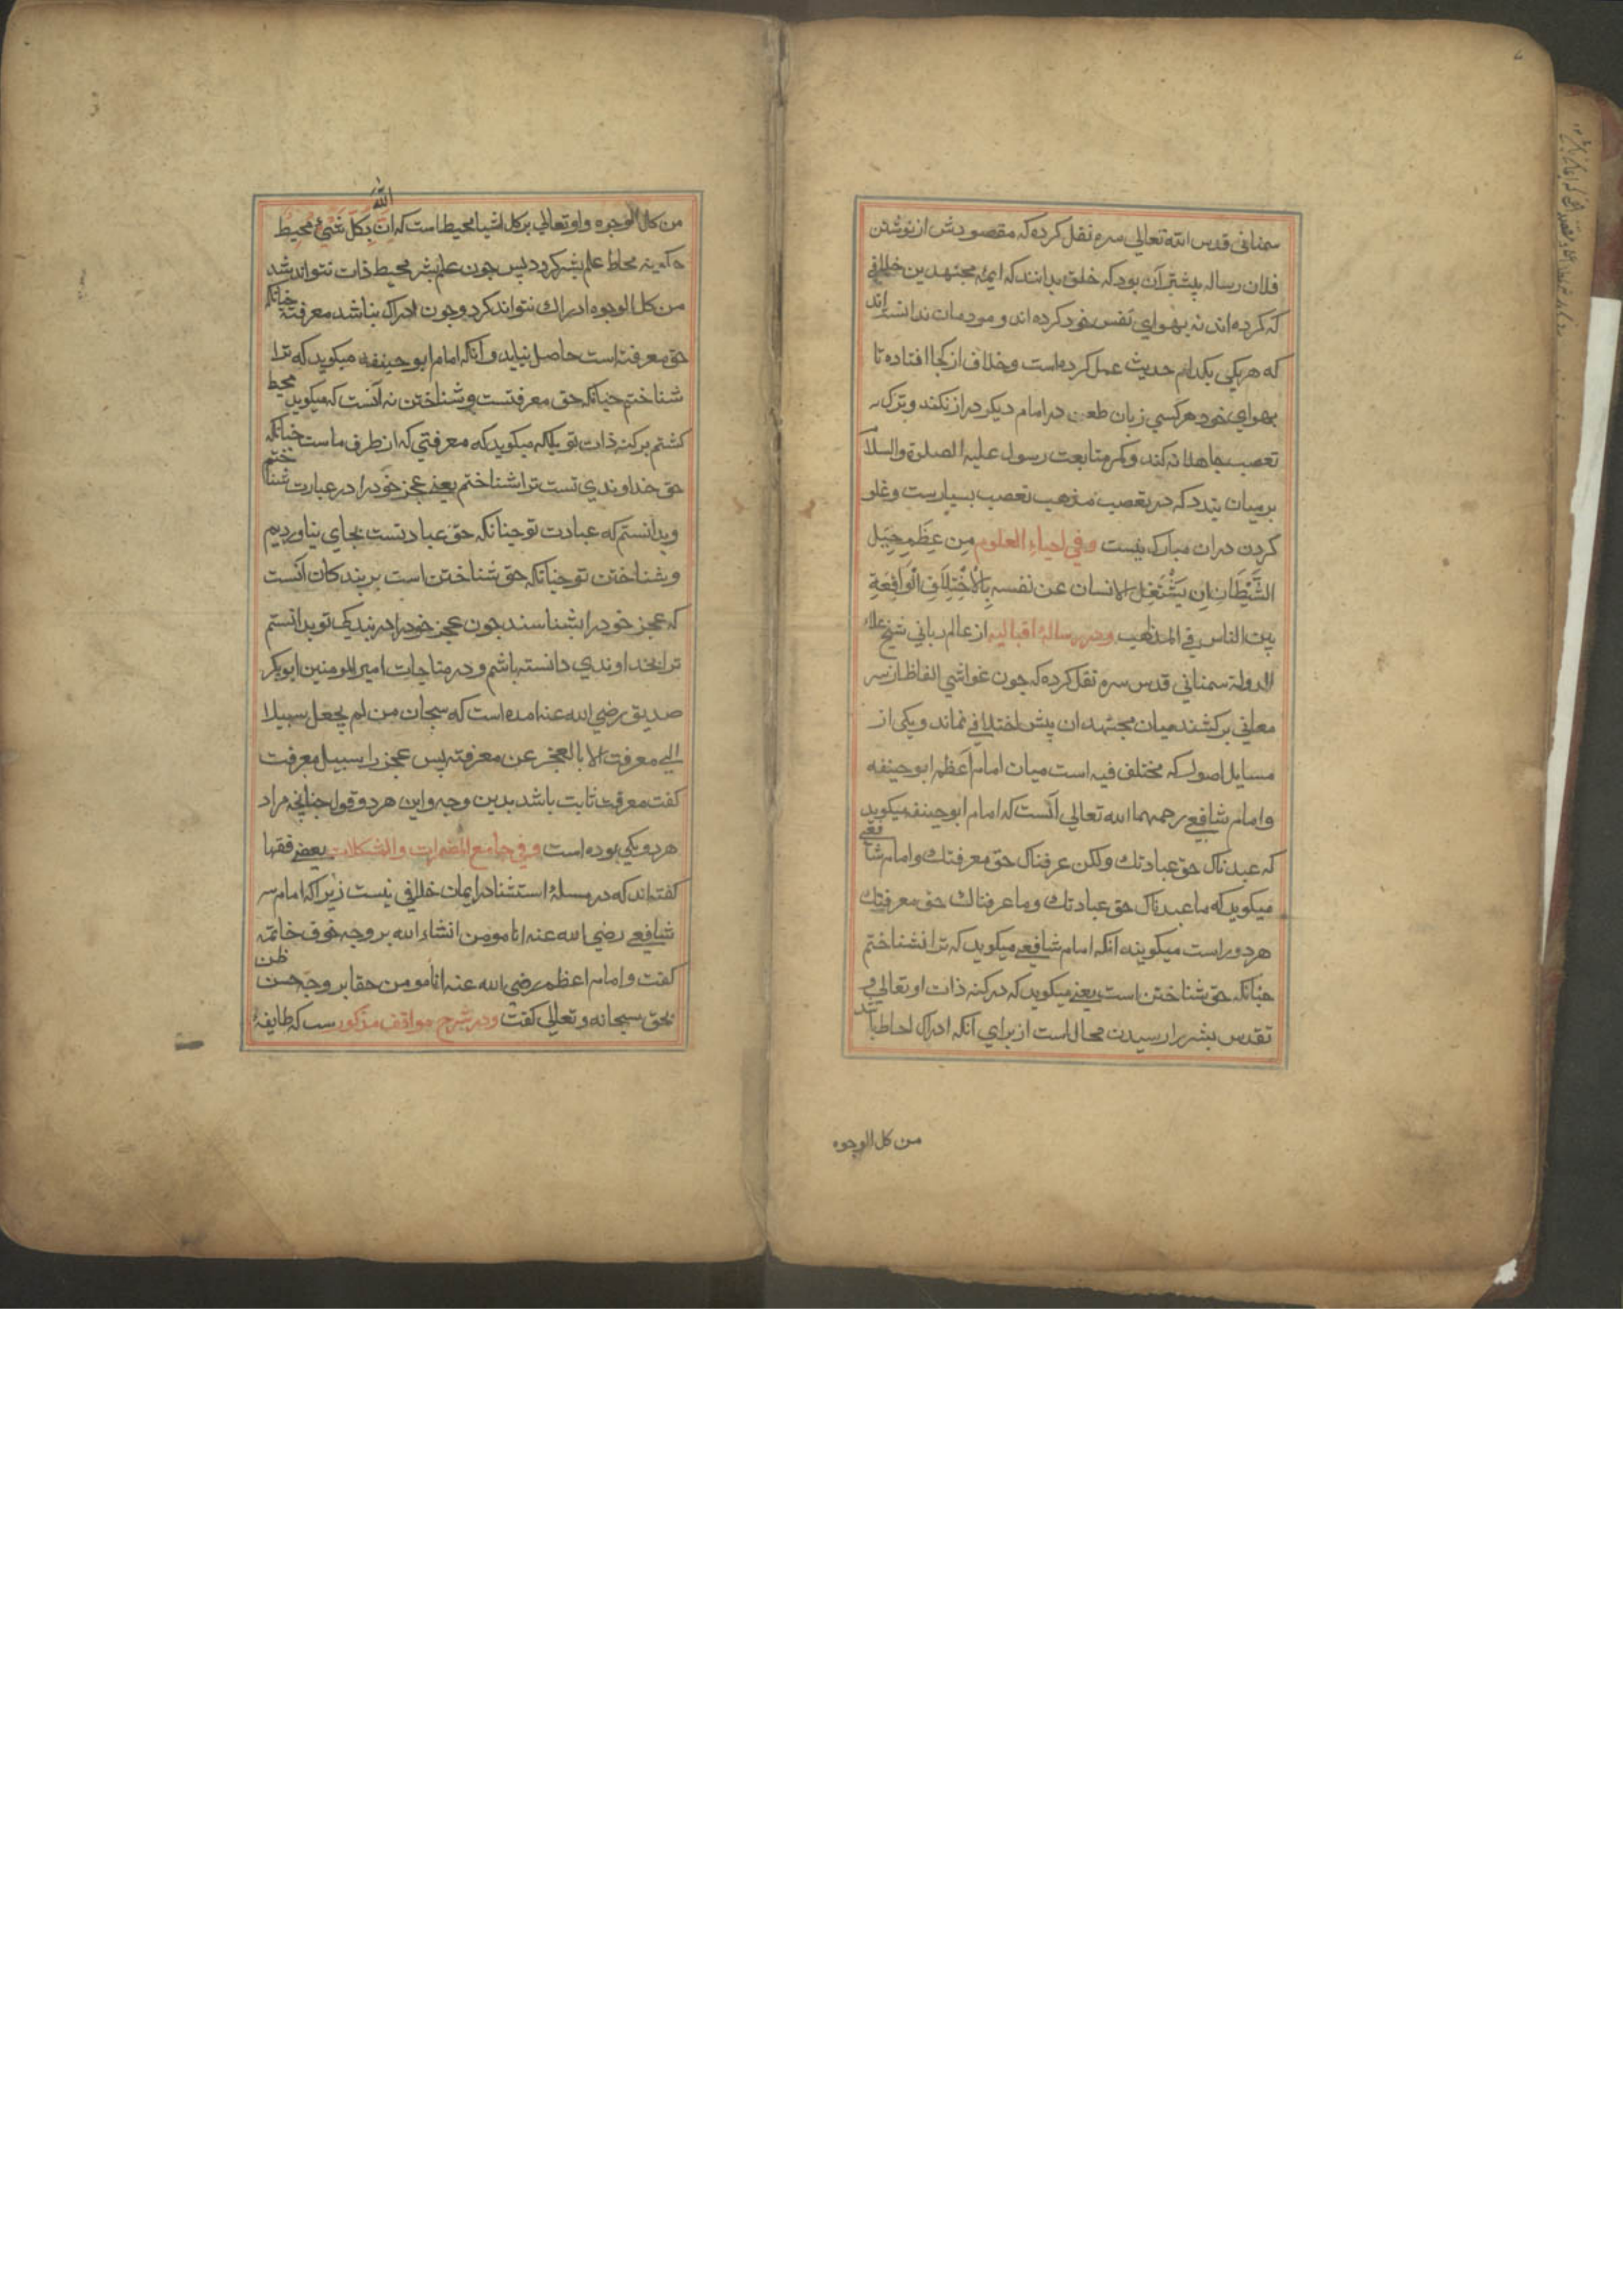 سمنانی قدس الله تعالی سره نقل کرده که مقصودش از نوشتن
فلان رساله پیشتر آن بود که خلق بدانند که ایمه مجتهدین خلافی
که کرده اند نه بهوای نفس خود کرده اند و مردمان ندانسته اند
که هر یکی بکدام حدیث عمل کرده است و خلاف از کجا افتاده تا
بهوای خود هر کسی زبان طعن در امام دیکر دراز نکند و ترک
تعصب جاهلانه کند و کمر متابعت رسول علیه الصلوة والسلام
بر میان بندد که در تعصب مذهب تعصب بسیاریست و غلو
کردن دران مبارک نیست وفی احیاء العلوم مِن عِظَمِ حِیَل
الشَّیْطَانِ ان یَشْتَغِلَ الانسان عن نفسه بِالْاخْتِلَافِ الْوَاقِعَةِ
بین الناس فی المذهب ودر رسالۀ اقبالیه از عالم ربانی شیخ علاء
الدولة سمنانی قدس سره نقل کرده که چون غواشی الفاظ از سر
معانی برکشند میان مجتهدان بیش اختلافی نماند و یکی از
مسایل اصول که مختلف فیه است میان امام اعظم ابو حنیفه
و امام شافعی رحمهما الله تعالی آنست که امام ابو حنیفه میکوید
که عبدناک حق عبادتک ولکن عرفناک حق معرفتک و امام شافعی
میکوید که ما عبدناک حق عبادتک وما عرفناک حق معرفتک
هر دو راست میکویند انکه امام شافعی میکوید که ترا نشناختم
چنانکه حق شناختن است یعنی میکوید که در کنه ذات او تعالی و
تقدس بشر را رسیدن محال است از برای آنکه ادراک احاطه باشد
من کل الوجوه
من کل الوجوه و او تعالی بر کل اشیا محیط است که ان الله بِکُلِّ شَیْءٍ مُحِیط
محاط علم بشر کردد پس چون علم بشر محیط ذات نتواند شد
من کل الوجوه ادراک نتواند کرد و چون ادراک نباشد معرفته چنانکه
حق معرفته است حاصل نیاید و آنکه امام ابو حنیفه میکوید که ترا
شناختم چنانکه حق معرفتست و شناختن نه آنست که میکوید محیط
کشتم بر کنه ذات تو بلکه میکوید که معرفتی که از طرف ماست چنانکه
حق خداوندی تست ترا شناختم یعنی عجز خود را در عبارت شناختم
و بدانستم که عبادت تو چنانکه حق عبادتست بجای نیاوردیم
و بشناختن تو چنانکه حق شناختن است بر بندکان آنست
که عجز خود را بشناسند چون عجز خود را در بندکی تو بدانستم
ترا بخداوندی دانسته باشم و در مناجات امیر المومنین ابوبکر
صدیق رضی الله عنه امده است که سبحان من لم یجعل سبیلا
الی معرفته الا بالعجز عن معرفته پس عجز را سبیل معرفت
کفت معرفت ثابت باشد بدین وجه و این هر دو قول چنانچه مراد
هر دو یکی بوده است وفی جامع المضمرات والمشکلات بعضی فقها
کفته اند که در مسلۀ استثنا در ایمان خلافی نیست زیرا که امام
شافعی رضی الله عنه انا مومن انشاء الله بر وجه خوف خاتمه
کفت و امام اعظم رضی الله عنه انا مومن حقا بر وجه حسن ظن
بحق سبحانه و تعالی کفت ودر شرح مواقف مذکور ست که طایفۀ